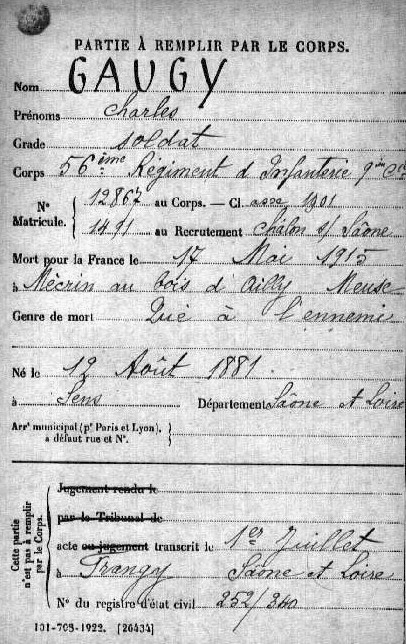 PARTIE À REMPLIR PAR LE CORPS.
Nom GAUGY
Prénoms Charles
Grade soldat
Corps 56ème Régiment d Infanterie 9me Cie
Nº Matricule. { 12867 au Corps. — Cl. 1901
1491 au Recrutement Châlon s/ Saône
Mort pour la France le 17 Mai 1915
à Mécrin au bois d'Ailly Meuse
Genre de mort Tué à l'ennemi
Né le 12 Août 1881.
à Sens Département Saône et Loire
Arrt municipal (pr Paris et Lyon), à défaut rue et Nº. }
Cette partie n'est pas à remplir par le Corps.
Jugement rendu le
par le Tribunal de
acte ou jugement transcrit le 1er Juillet
à Frangy Saône et Loire
Nº du registre d'état civil 252/340
101-708-1922. [26434]